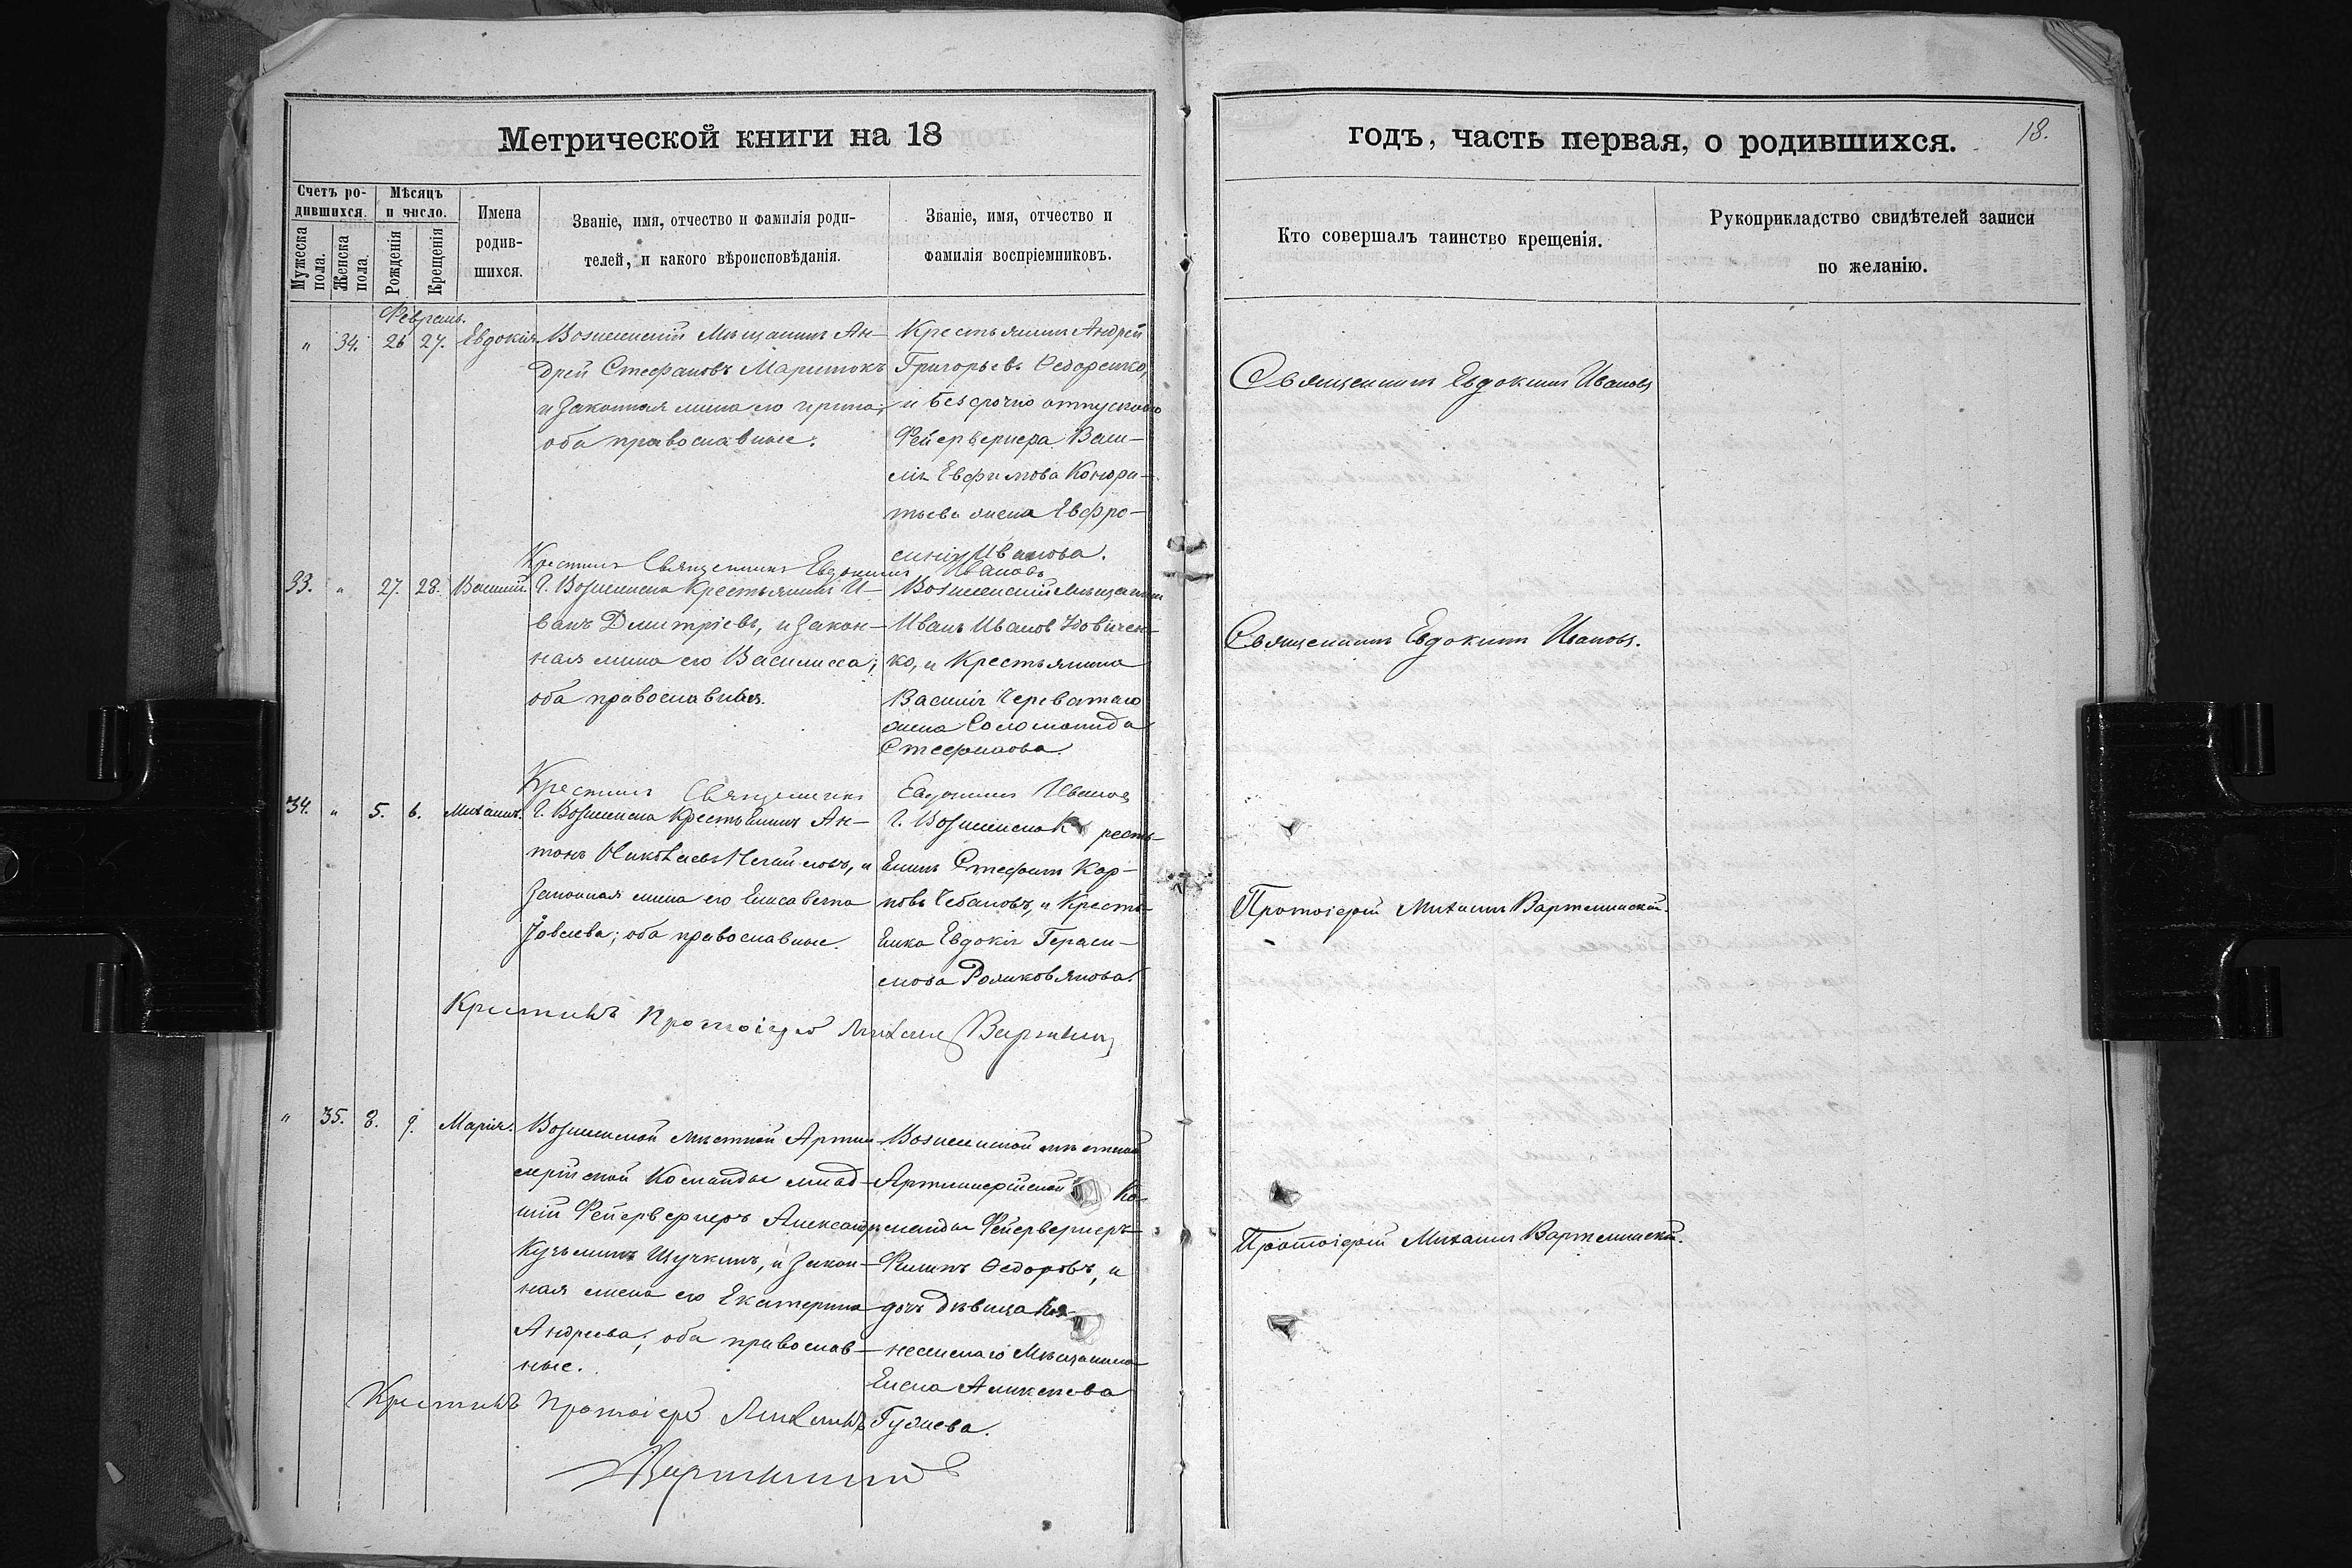 Метрической книги на 18
Счетъ ро-
дившихся.
Мужеска пола.
Женска пола.
Мѣсяцъ
и число.
Рожденія
Крещенія
Имена
родив-
шихся.
Званіе, имя, отчество и фамилія роди-
телей, и какого вѣроисповѣданія.
Званіе, имя, отчество и
фамилія воспріемниковъ.
Февраль.
" 34. 26 27. Евдокія
Вознесенскій Мѣщанинъ Ан-
дрей Стефановъ
и законная жена его Ирина;
оба православные.
Крестьянинъ Андрей
Григорьевъ Ѳедоренко,
и безсрочно отпускного
Фейерверкера Васи-
лія Евфимова
жена Евфро-
синія Иванова.
Крестилъ Священникъ Евдокимъ Ивановъ
33. " 27. 28. Василій.
Г. Вознесенска Крестьянинъ И-
ванъ Дмитріевъ, и закон-
ная жена его Василисса;
оба православные.
Вознесенскій Мѣщанинъ
Иванъ Иванов
ко, и Крестьянина
Василія Череватаго
жена Соломонида
Стефанова.
Крестилъ Священникъ Евдокимъ Ивановъ
34. " 5. 6. Михаилъ.
Г. Вознесенска Крестьянинъ Ан-
тонъ, и
законная жена его Елисавета
оба православные.
Г. Вознесенска Кресть-
янинъ Стефанъ Кар-
повъ Чебановъ, и Кресть-
янка Евдокія Гераси-
мова
Крестилъ Протоіерей Михаилъ
" 35. 8. 9. Марія.
Вознесенской мѣстной Артил-
лерійской Команды млад-
шій Фейерверкеръ Александръ
Кузьминъ Щучкинъ, и закон-
ная жена его Екатерина
Андреева; оба православ-
ные.
Вознесенской мѣстной
Артиллерійской Ко-
манды Фейерверкеръ
Филипъ Ѳедоровъ, и
дочь дѣвица Воз-
несенскаго Мѣщанина
Елена Алексѣева
Гуляева.
Крестилъ Протоіерей Михаилъ
годъ, часть первая, о родившихся.
18.
Кто совершалъ таинство крещенія.
Рукоприкладство свидѣтелей записи
по желанію.
Священникъ Евдокимъ Ивановъ
Священникъ Евдокимъ Ивановъ.
Протоіерей Михаилъ Вартминскій.
Протоіерей Михаилъ Вартминскій.